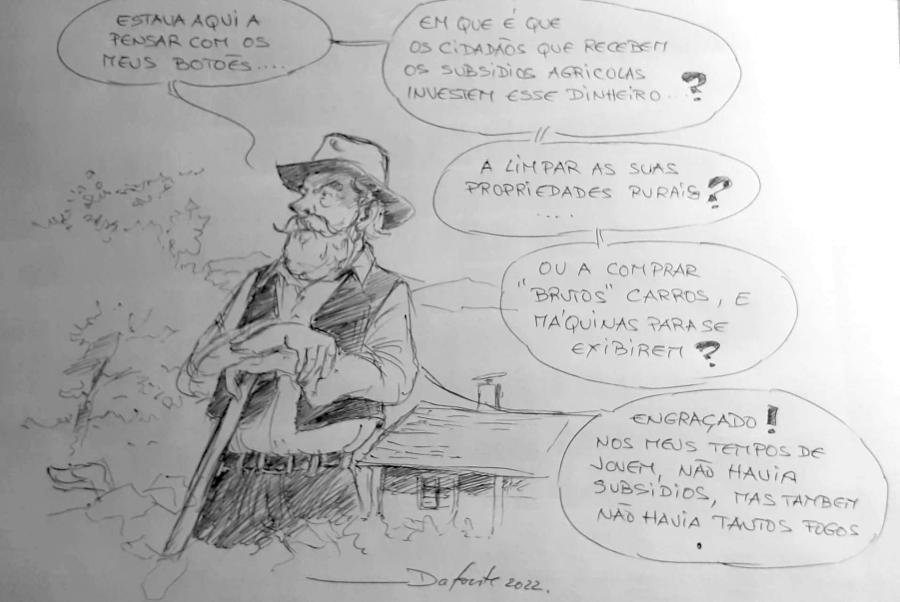 ESTAVA AQUI A
PENSAR COM OS
MEUS BOTOẼS....
EM QUE É QUE
OS CIDADÃOS QUE RECEBEM
OS SUBSÍDIOS AGRICOLAS
INVESTEM ESSE DINHEIRO...?
A LIMPAR AS SUAS
PROPRIEDADES RURAIS?
....
OU A COMPRAR
"BRUTOS" CARROS, E
MÁQUINAS PARA SE
EXIBIREM?
ENGRAÇADO!
NOS MEUS TEMPOS DE
JOVEM, NÃO HAVIA
SUBSÍDIOS, MAS TAMBEM
NÃO HAVIA TANTOS FOGOS
.
Dafonte 2022.